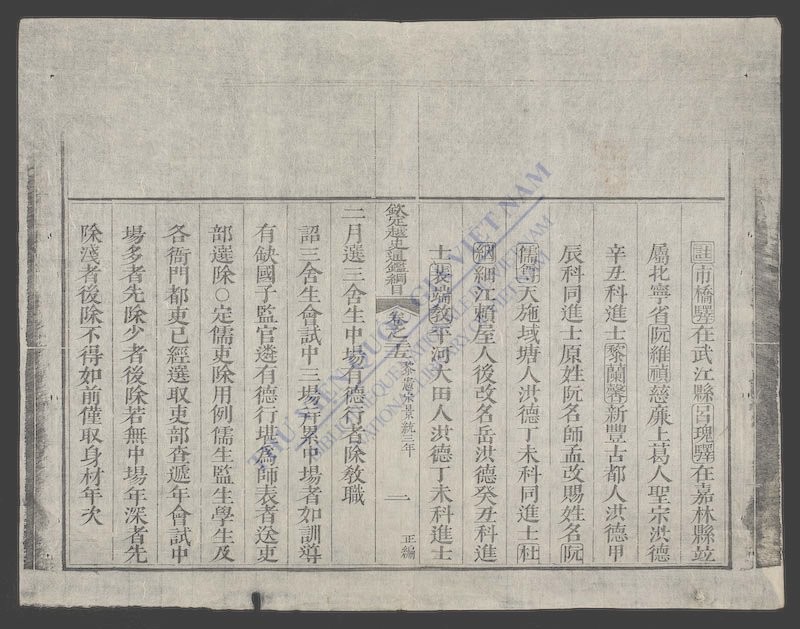 註市橋驛在武江縣呂瑰驛在嘉林縣竝
屬北寧省阮維禎慈廉上葛人聖宗洪德
辛丑科進士黎蘭馨新豐古都人洪德甲
辰科同進士原姓阮名師孟改賜姓名阮
儒天施域塘人洪德丁未科同進士杜
絪細江賴屋人後改名岳洪德癸丑科進
士裴端教平河大田人洪德丁未科進士
欽定越史通鑑綱目 卷之 五 黎憲宗景統三年 一 正編
二月選三舍生中場有德行者除教職
詔三舍生會試中三場并累中場者如訓導
有缺國子監官遴有德行堪爲師表者送吏
部選除○定儒吏除用例儒生監生學生及
各衙門都吏已經選取吏部查遞年會試中
場多者先除少者後除若無中場年深者先
除淺者後除不得如前僅取身材年次
THƯ VIỆN QUỐC GIA VIỆT NAM
NATIONAL LIBRARY OF VIETNAM